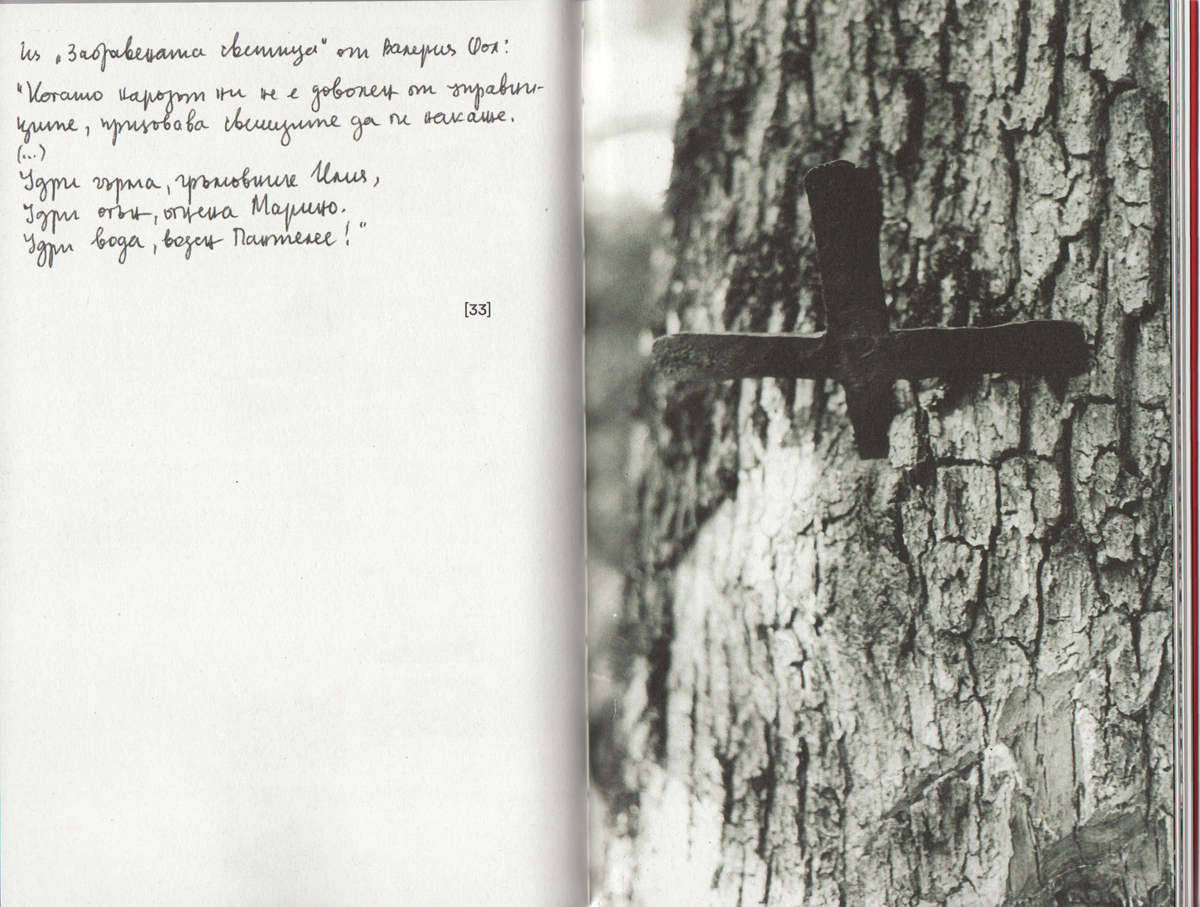 Из „Забравената светица" от Валерия Фол:
"Когато народът ни не е доволен от управни-
ците, призовава светците да ги накаже.
(...)
Удри гърма, гръмовише Илия,
Удри огън, огнена Марино.
Удри вода, воден Пантелее!"
[33]